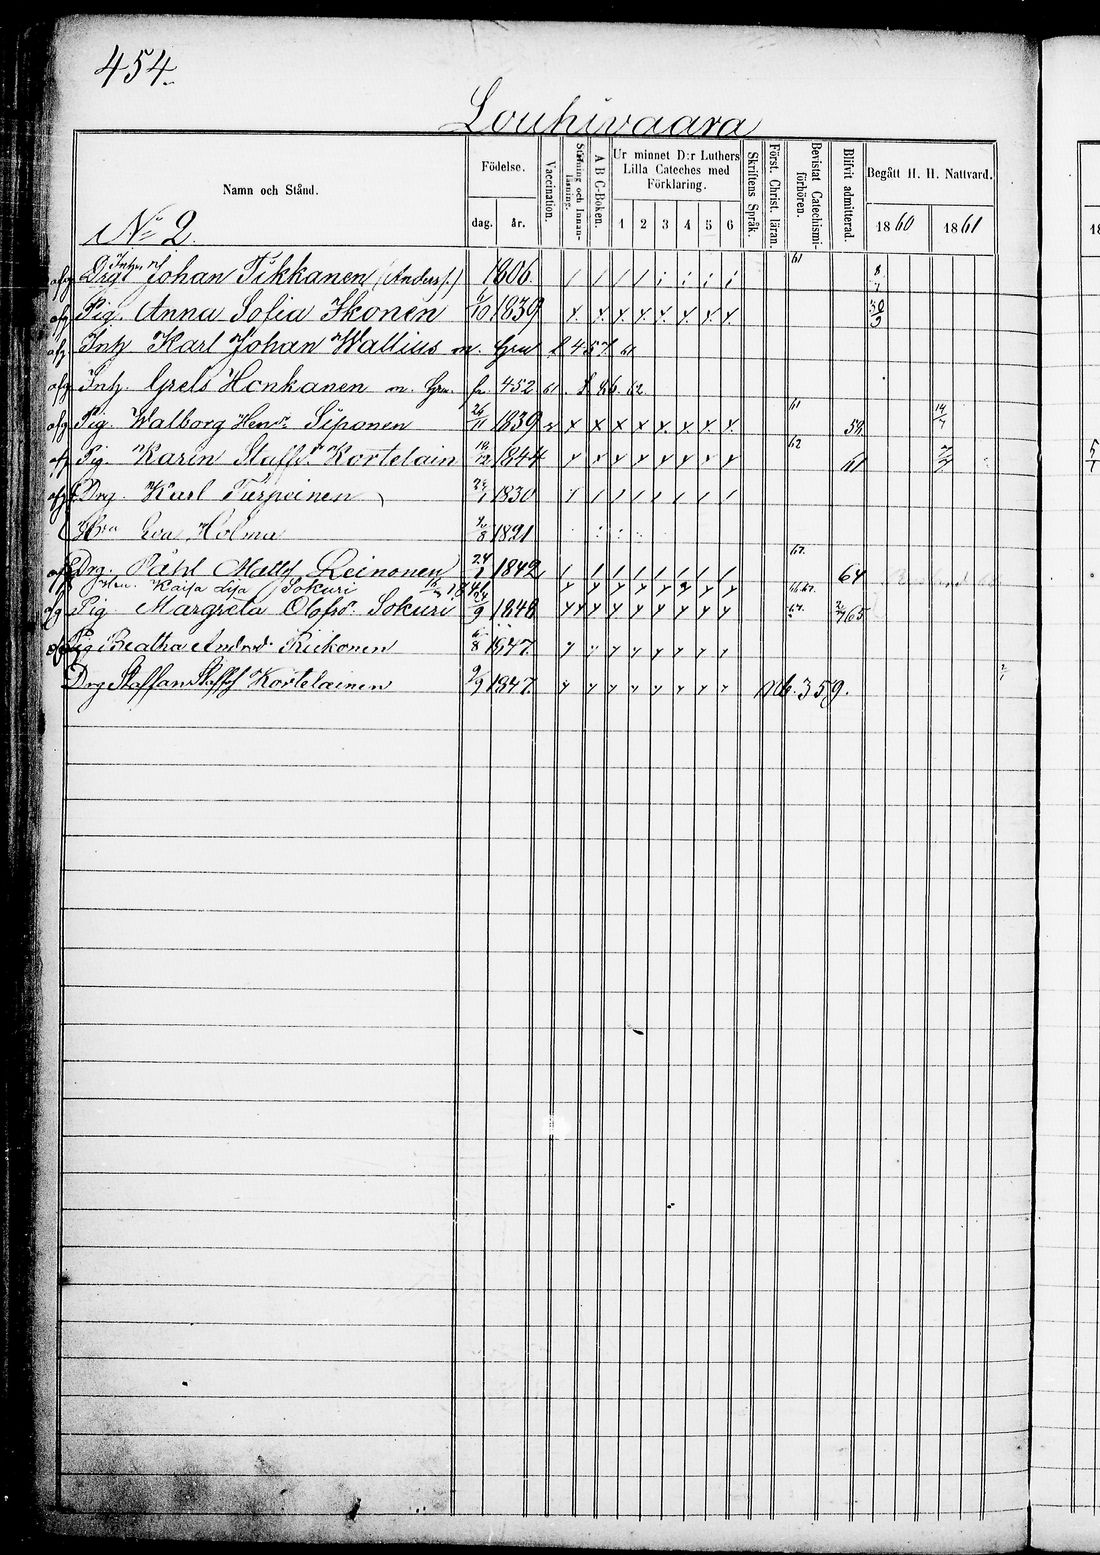 454.
Louhivaara
Namn och Stånd.
Födelse.
dag.
år.
Vaccination.
Stafning och Innanläsning.
A B C-Boken.
Ur minnet D:r Luthers Lilla Cateches med Förklaring.
1 2 3 4 5 6
Skriftens Språk.
Först. Christ. läran.
Bevistat Catechismiförhören.
Blifvit admitterad.
Begått H. H. Nattvard.
1860 1861
No 2.
Drg Inh. Johan Tikkanen (Anders f.) 1806 61 8/7
Pig. Anna Sofia Ikonen 6/10 1839 30/9
Inh. Karl Johan Wallius m. Hru f. 457. 61
Inh. Grels Honkanen m. Hru. fr. 452 61. 86. 62.
Pig. Walborg Henr. Siponen 26/11 1839 61 59. 14/7
Pig. Karin Staffs. Kortelain 19/12 1844 62 61
Drg. Karl Turpeinen 1830
Hra Eva Holma 1821
Drg. Påhl Matts Leinonen 24/1 1842 67. 64
Hu. Kaisa Lisa Sokuri 1841 66.67.
Pig. Margreta Olofsd. Sokuri 9 1848 67. 65
Pig. Beatha Andersd. Riekonen 6/8 1847
Drg Staffan Staff Kortelainen 9/9 1847. 359.